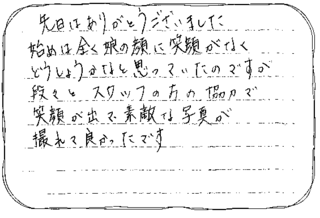 先日はありがとうございました
始めは全く娘の顔に笑顔がなく
どうしようかなと思っていたのですが
段々とスタッフの方の協力で
笑顔が出て素敵な写真が
撮れて良かったです